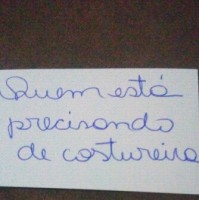 Quem está
precisando
de costureira